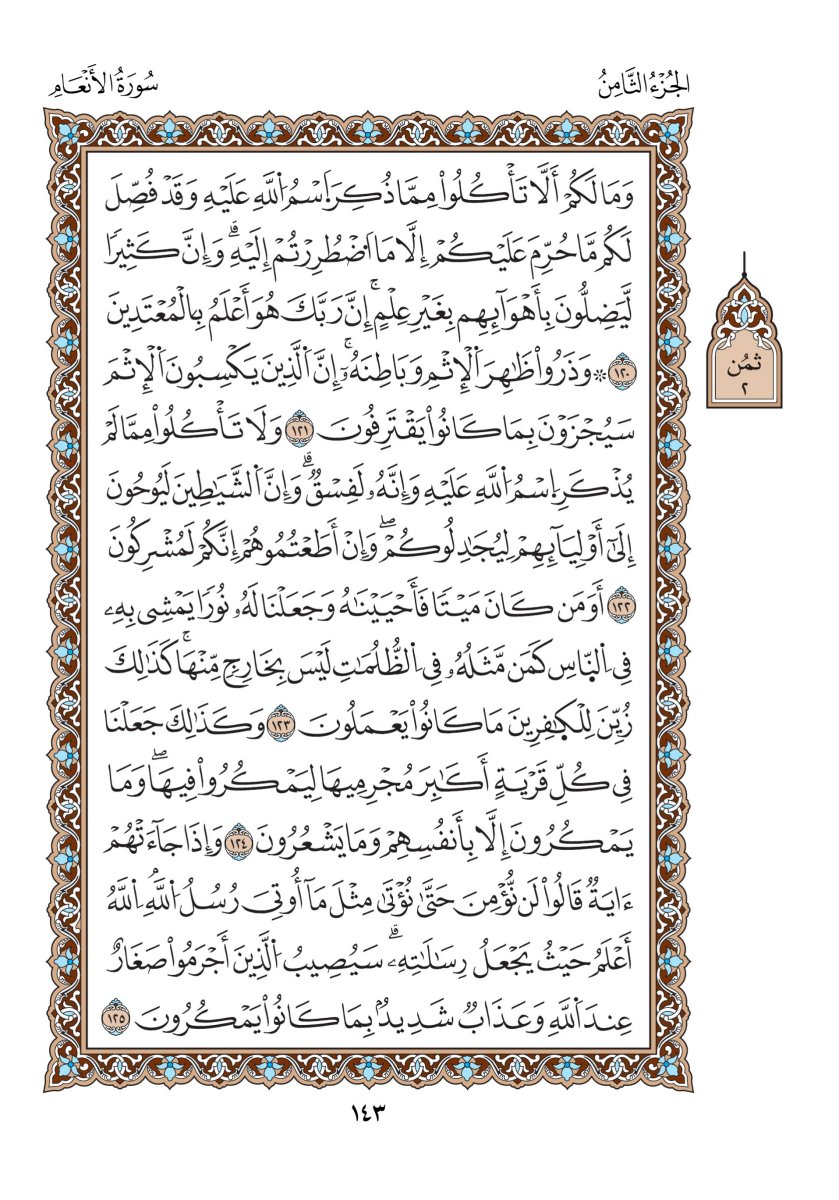 الجُزْءُ الثَّامِنُ
سُورَةُ الأَنْعَامِ
وَمَا لَكُمْ أَلَّا تَأْكُلُواْ مِمَّا ذُكِرَ اَ۪سْمُ اُ۬للَّهِ عَلَيْهِ وَقَدْ فُصِّلَ
لَكُم مَّا حُرِّمَ عَلَيْكُمْ إِلَّا مَا اَ۟ضْطُرِرْتُمْ إِلَيْهِۗ وَإِنَّ كَثِيرٗا
لَّيَضِلُّونَ بِأَهْوَآئِهِم بِغَيْرِ عِلْمٍۚ إِنَّ رَبَّكَ هُوَ أَعْلَمُ بِالْمُعْتَدِينَ
١٢٠ ۞ وَذَرُواْ ظَٰهِرَ اَ۬لْإِثْمِ وَبَاطِنَهُۥٓۚ إِنَّ اَ۬لَّذِينَ يَكْسِبُونَ اَ۬لْإِثْمَ
سَيُجْزَوْنَ بِمَا كَانُواْ يَقْتَرِفُونَ ١٢١ وَلَا تَأْكُلُواْ مِمَّا لَمْ
يُذْكَرِ اِ۪سْمُ اُ۬للَّهِ عَلَيْهِ وَإِنَّهُۥ لَفِسْقٞۗ وَإِنَّ اَ۬لشَّيَٰطِينَ لَيُوحُونَ
إِلَىٰٓ أَوْلِيَآئِهِمْ لِيُجَٰدِلُوكُمْۖ وَإِنْ أَطَعْتُمُوهُمْ إِنَّكُمْ لَمُشْرِكُونَ
١٢٢ أَوَمَن كَانَ مَيْتٗا فَأَحْيَيْنَٰهُ وَجَعَلْنَا لَهُۥ نُورٗا يَمْشِي بِهِۦ
فِي اِ۬لنَّاسِ كَمَن مَّثَلُهُۥ فِي اِ۬لظُّلُمَٰتِ لَيْسَ بِخَارِجٖ مِّنْهَاۚ كَذَٰلِكَ
زُيِّنَ لِلْكٰ۪فِرِينَ مَا كَانُواْ يَعْمَلُونَ ١٢٣ وَكَذَٰلِكَ جَعَلْنَا
فِي كُلِّ قَرْيَةٍ أَكَٰبِرَ مُجْرِمِيهَا لِيَمْكُرُواْ فِيهَاۖ وَمَا
يَمْكُرُونَ إِلَّا بِأَنفُسِهِمْ وَمَا يَشْعُرُونَ ١٢٤ وَإِذَا جَآءَتْهُمْ
ءَايَةٞ قَالُواْ لَن نُّؤْمِنَ حَتَّىٰ نُؤْتَىٰ مِثْلَ مَآ أُوتِيَ رُسُلُ اُ۬للَّهِۘ اِ۬للَّهُ
أَعْلَمُ حَيْثُ يَجْعَلُ رِسَالَٰتِهِۦۗ سَيُصِيبُ اُ۬لَّذِينَ أَجْرَمُواْ صَغَارٌ
عِندَ اَ۬للَّهِ وَعَذَابٞ شَدِيدُۢ بِمَا كَانُواْ يَمْكُرُونَ ١٢٥
ثمُن
٢
١٤٣